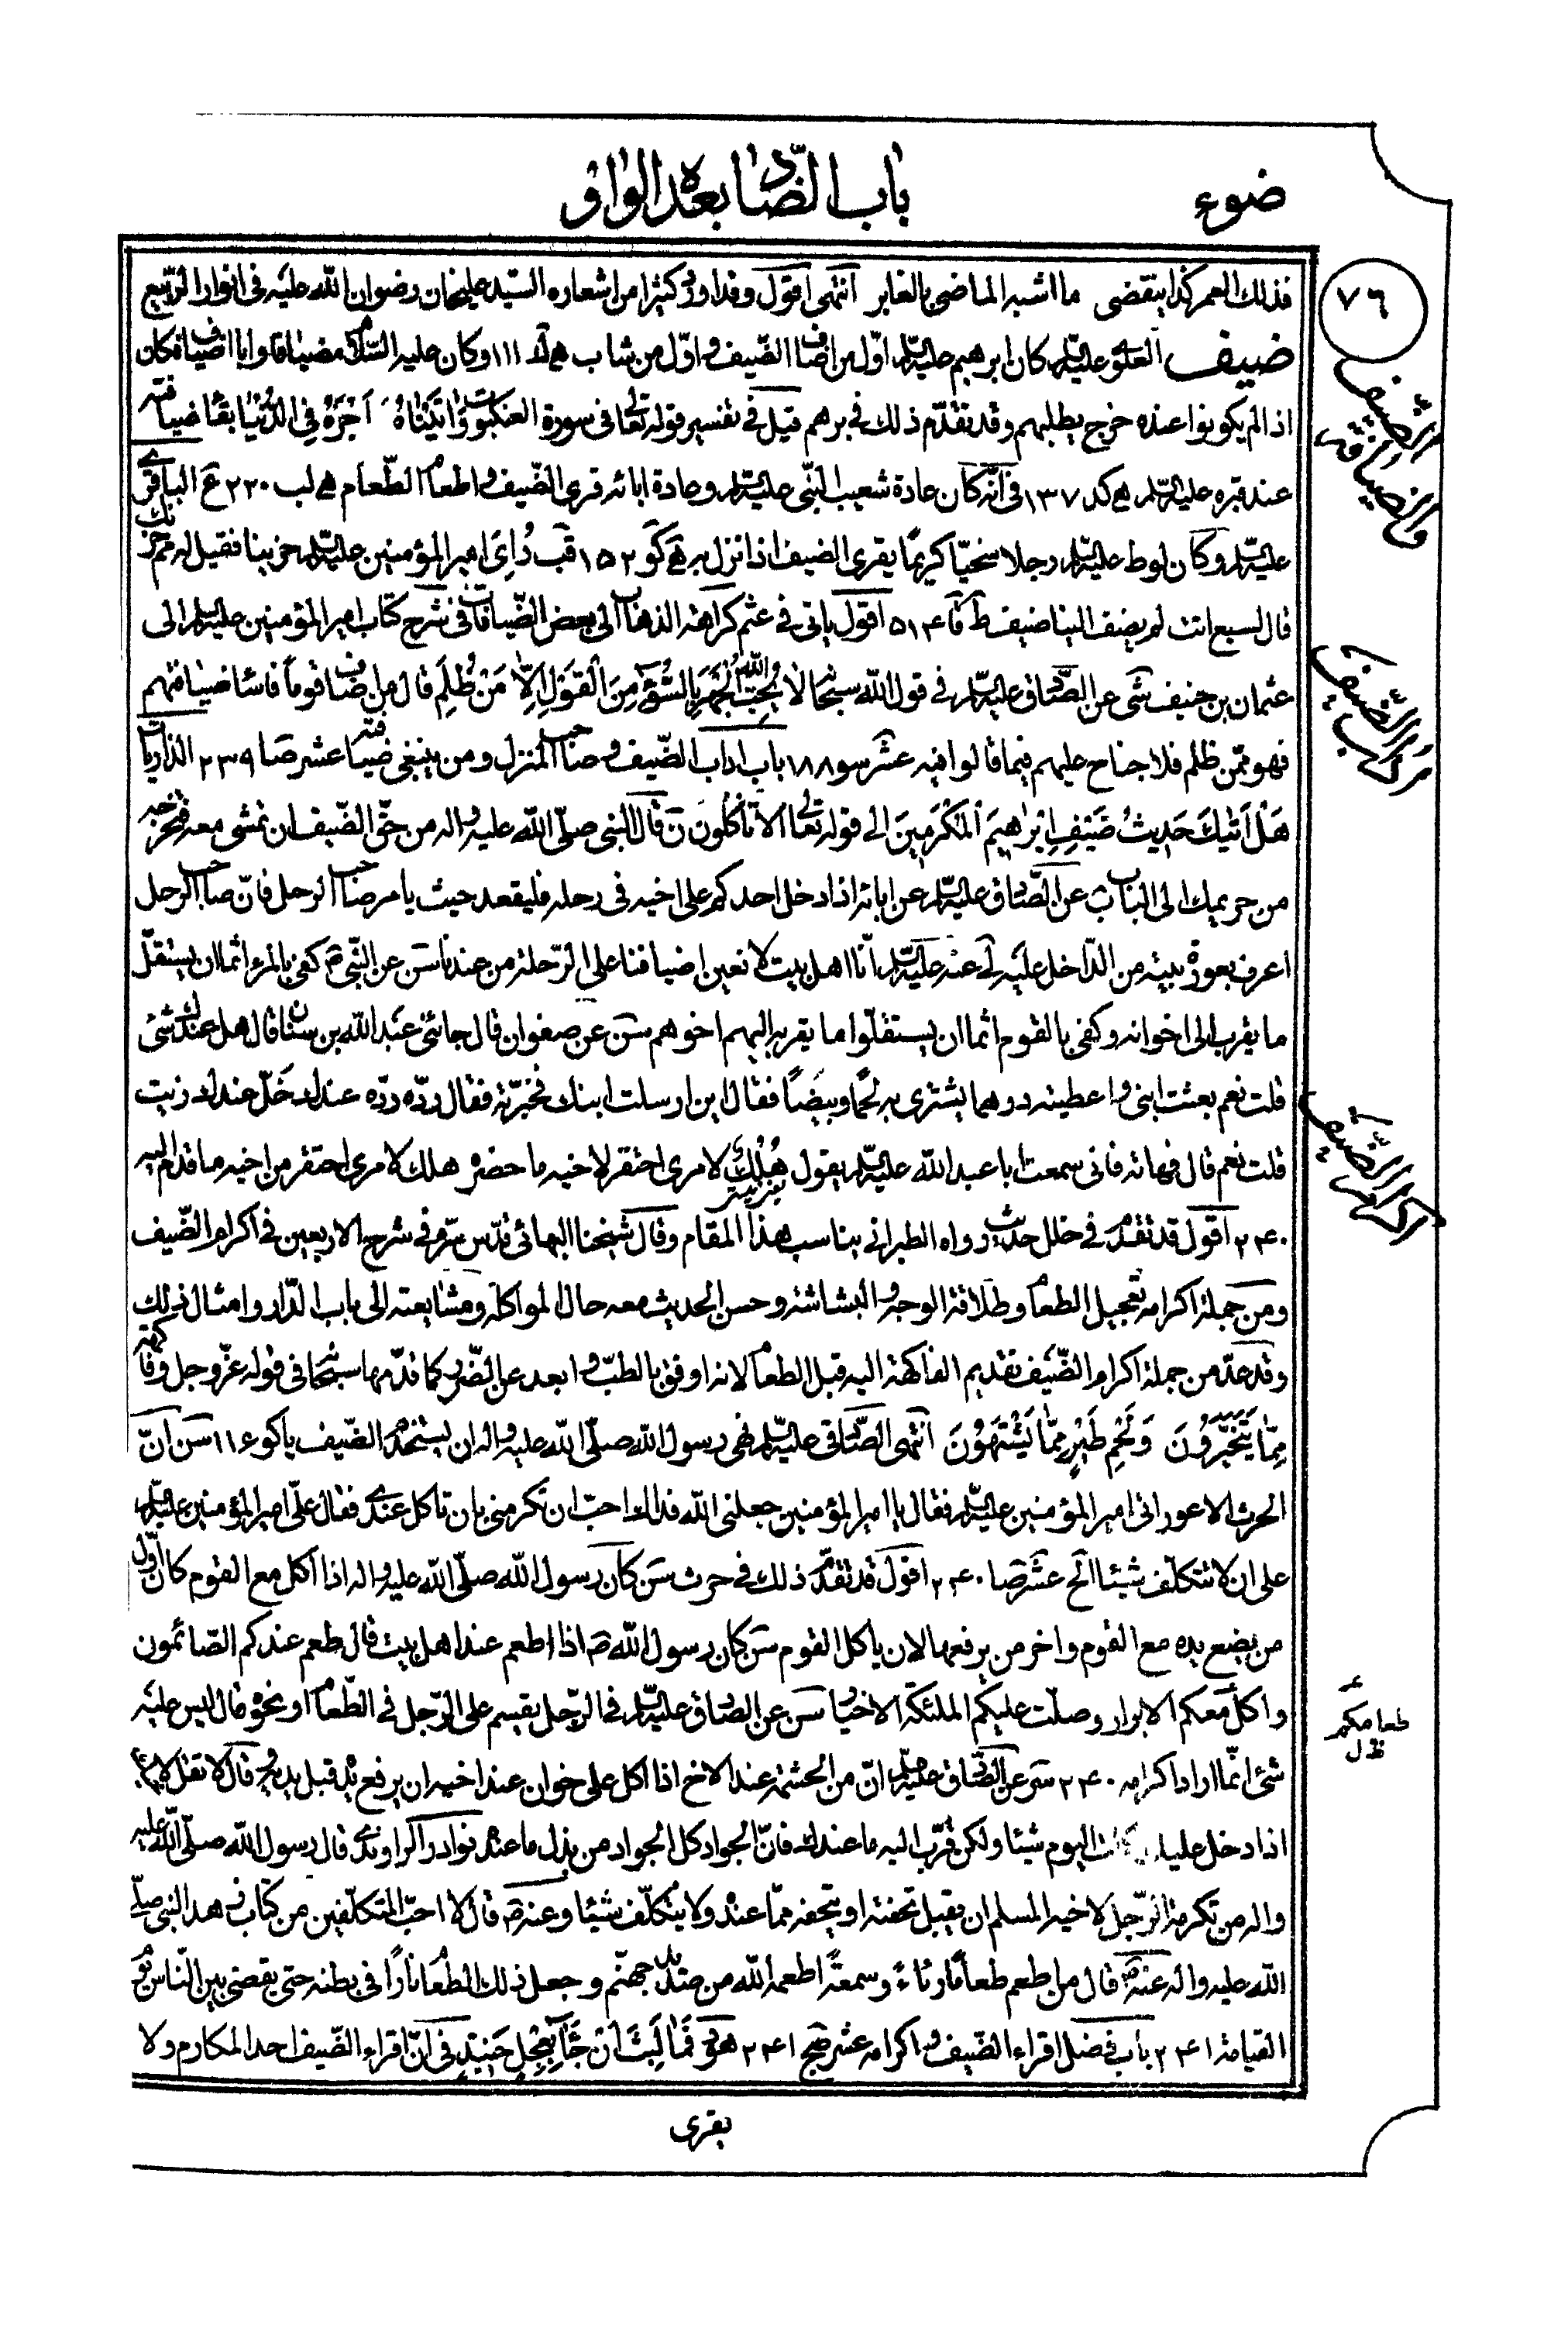 ضوء
باب الضّاد بعده الواو
٧٦
فذلك العمر كذا ينقضى ما اشبه الماضى بالغابر انتهى اقول وقد اورد كثيرا من اشعاره السيّد عليخان رضوان الله عليه فى انوار الرّبيع
ضيف العلوى عليه السّلم كان ابرهيم عليه السّلم اوّل من اضاف الضّيف واوّل من شاب ١١١ وكان عليه السّلام مضيافا وابا اضياف فكان
اذا لم يكونوا عنده خرج يطلبهم وقد تقدّم ذلك فى برهم قيل فى تفسير قوله تعالى فى سورة العنكبوت وَاتَيْنَاهُ اَجْرَهُ فِى الدُّنْيَا بقاء ضيافته
عند قبره عليه السّلم ه كد ١٣٧ فى انّه كان عادة شعيب النّبى عليه السّلم وعادة ابائه قرى الضّيف واطعام الطّعام ه لب ٢٢٠ ع الباقرى
عليه السّلم وكان لوط عليه السّلم رجلا سخيّا كريمًا يقرى الضيف اذا نزل به ه كو ١٥٢ قب رُاِىَ امير المؤمنين عليه السّلم حزينا فقيل له ممّ حزنك
قال لسبع اتت لم يضف الينا ضيف ط قا ٥١٤ اقول ياتى فى عثم كراهة الذهاب الى بعض الضّيافات فى شرح كتاب امير المؤمنين عليه السّلم الى
عثمان بن حنيف شى عن الصّادق عليه السّلم فى قول الله سبحانه لا يُحِبُّ اللهُ الْجَهْرَ بِالسُّوءِ مِنَ الْقَوْلِ اِلّا مَنْ ظُلِمَ قال من اضاف قوماً فاساء ضيافتهم
فهو ممّن ظلم فلا جناح عليهم فيما قالوا فيه عشر سو ١٨٨ باب اداب الضّيف وصاحب المنزل ومن ينبغى ضيافته عشر صا ٢٣٩ الذاريات
هَلْ اَتٰيكَ حَدِيثُ ضَيْفِ اِبْرٰاهِيمَ الْمُكْرَمِينَ الى قوله تعالى اَلَا تَأْكُلُونَ ن قال النّبى صلّى الله عليه واله من حقّ الضّيف ان تمشى معه فتخرجه
من حريمك الى الباب ن عن الصّادق عليه السّلم عن ابائه اذا دخل احدكم على اخيه فى رحله فليقعد حيث يامر صاحب الرحل فانّ صاحب الرحل
اعرف بعورة بيته من الدّاخل عليه لى عنه عليه السّلم انّا اهل بيت لا نعين اضيافنا على الرّحلة من عندنا سن عن النّبى ص كفى بالمرء اثما ان يستقلّ
ما يقرب الى اخوانه وكفى بالقوم اثما ان يستقلّوا ما يقربه اليهم اخوهم سن عن صفوان قال جائنى عبد الله بن سنان قال هل عندك شئ
قلت نعم بعثت ابنى واعطيته درهما يشترى به لحمًا وبيضًا فقال اين ارسلت ابنك فخبّرته فقال ردّه ردّه عندك خَلّ عندك زيت
قلت نعم قال فهاته فانى سمعت ابا عبد الله عليه السّلم يقول هُلْك لامرئ احتقر لاخيه ما حضره هلك لامرئ احتقر من اخيه ما قدم اليه
٢٤٠ اقول قد تقدّم فى خلل حديث رواه الطبرانى يناسب هذا المقام وقال شيخنا البهائى قدّس سرّه فى شرح الاربعين فى اكرام الضّيف
ومن جملة اكرامه تعجيل الطعام وطلاقة الوجه والبشاشة وحسن الحديث معه حال المواكلة ومشايعته الى باب الدّار وامثال ذلك
وقد عدّ من جملة اكرام الضّيف تقديم الفاكهة اليه قبل الطعام لانه اوفق بالطبّ وابعد عن الضّرر كما قدّمها سبحانه فى قوله عزّ وجل وفاكهة
مِمّا يَتَخَيَّرُونَ وَلَحْمِ طَيْرٍ مِمّا يَشْتَهُوْنَ انتهى الصّادقى عليه السّلم نهى رسول الله صلّى الله عليه واله ان يستخدم الضّيف يا كو ١١٦ سن انّ
الحرث الاعور اتى امير المؤمنين عليه السّلم فقال يا امير المؤمنين جعلنى الله فداك احبّ ان تكرمنى بان تاكل عندى فقال علىّ امير المؤمنين عليه السّلم
على ان لا تتكلّف شيئا الخ عشر صا ٢٤٠ اقول قد تقدّم ذلك فى حرث سن كان رسول الله صلّى الله عليه واله اذا اكل مع القوم كان اوّل
من يضع يده مع القوم واخر من يرفعها لان ياكل القوم سن كان رسول الله ص اذا اطعم عند اهل بيت قال طعم عندكم الصّائمون
واكل معكم الابرار وصلّت عليكم الملئكة الاخيار سن عن الصادق عليه السّلم فى الرّجل يقسم على الرّجل فى الطّعام او نحوه قال ليس عليه
شئ انّما اراد اكرامه ٢٤٠ سر عن الصّادق عليه السّلم انّ من الحشمة عند الاخ اذا اكل على خوان عند اخيه ان يرفع يده قبل يديه قال لا تقل لاخيك
اذا دخل عليك اكلت اليوم شيئا ولكن قرّب اليه ما عندك فانّ الجواد كل الجواد من بذل ما عنده نوادر الراوندى قال رسول الله صلّى الله عليه
واله من تكرمة الرّجل لاخيه المسلم ان يقبل تحفته او يتحفه ممّا عنده ولا يتكلّف شيئا وعنه ص قال لا احبّ المتكلّفين من كتاب زهد النبى صلّى
الله عليه واله عنه ص قال من اطعم طعاماً رئاءً وسمعةً اطعمه الله من صديد جهنّم وجعل ذلك الطعام نارًا فى بطنه حتى يقضى بين النّاس يوم
القيامة ٢٤١ باب فضل اقراء الضّيف واكرامه عشر صج ٢٤١ هود فَمٰا لَبِثَ اَنْ جٰاءَ بِعِجْلٍ حَنِيذٍ فى انّ اقراء الضّيف احد المكارم ولا
يقرى
الضيف والضيافة
اداب الضيف
اكرام الضيف
طعامكم
ظ ل